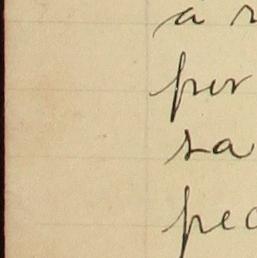 à
per
sa
pec